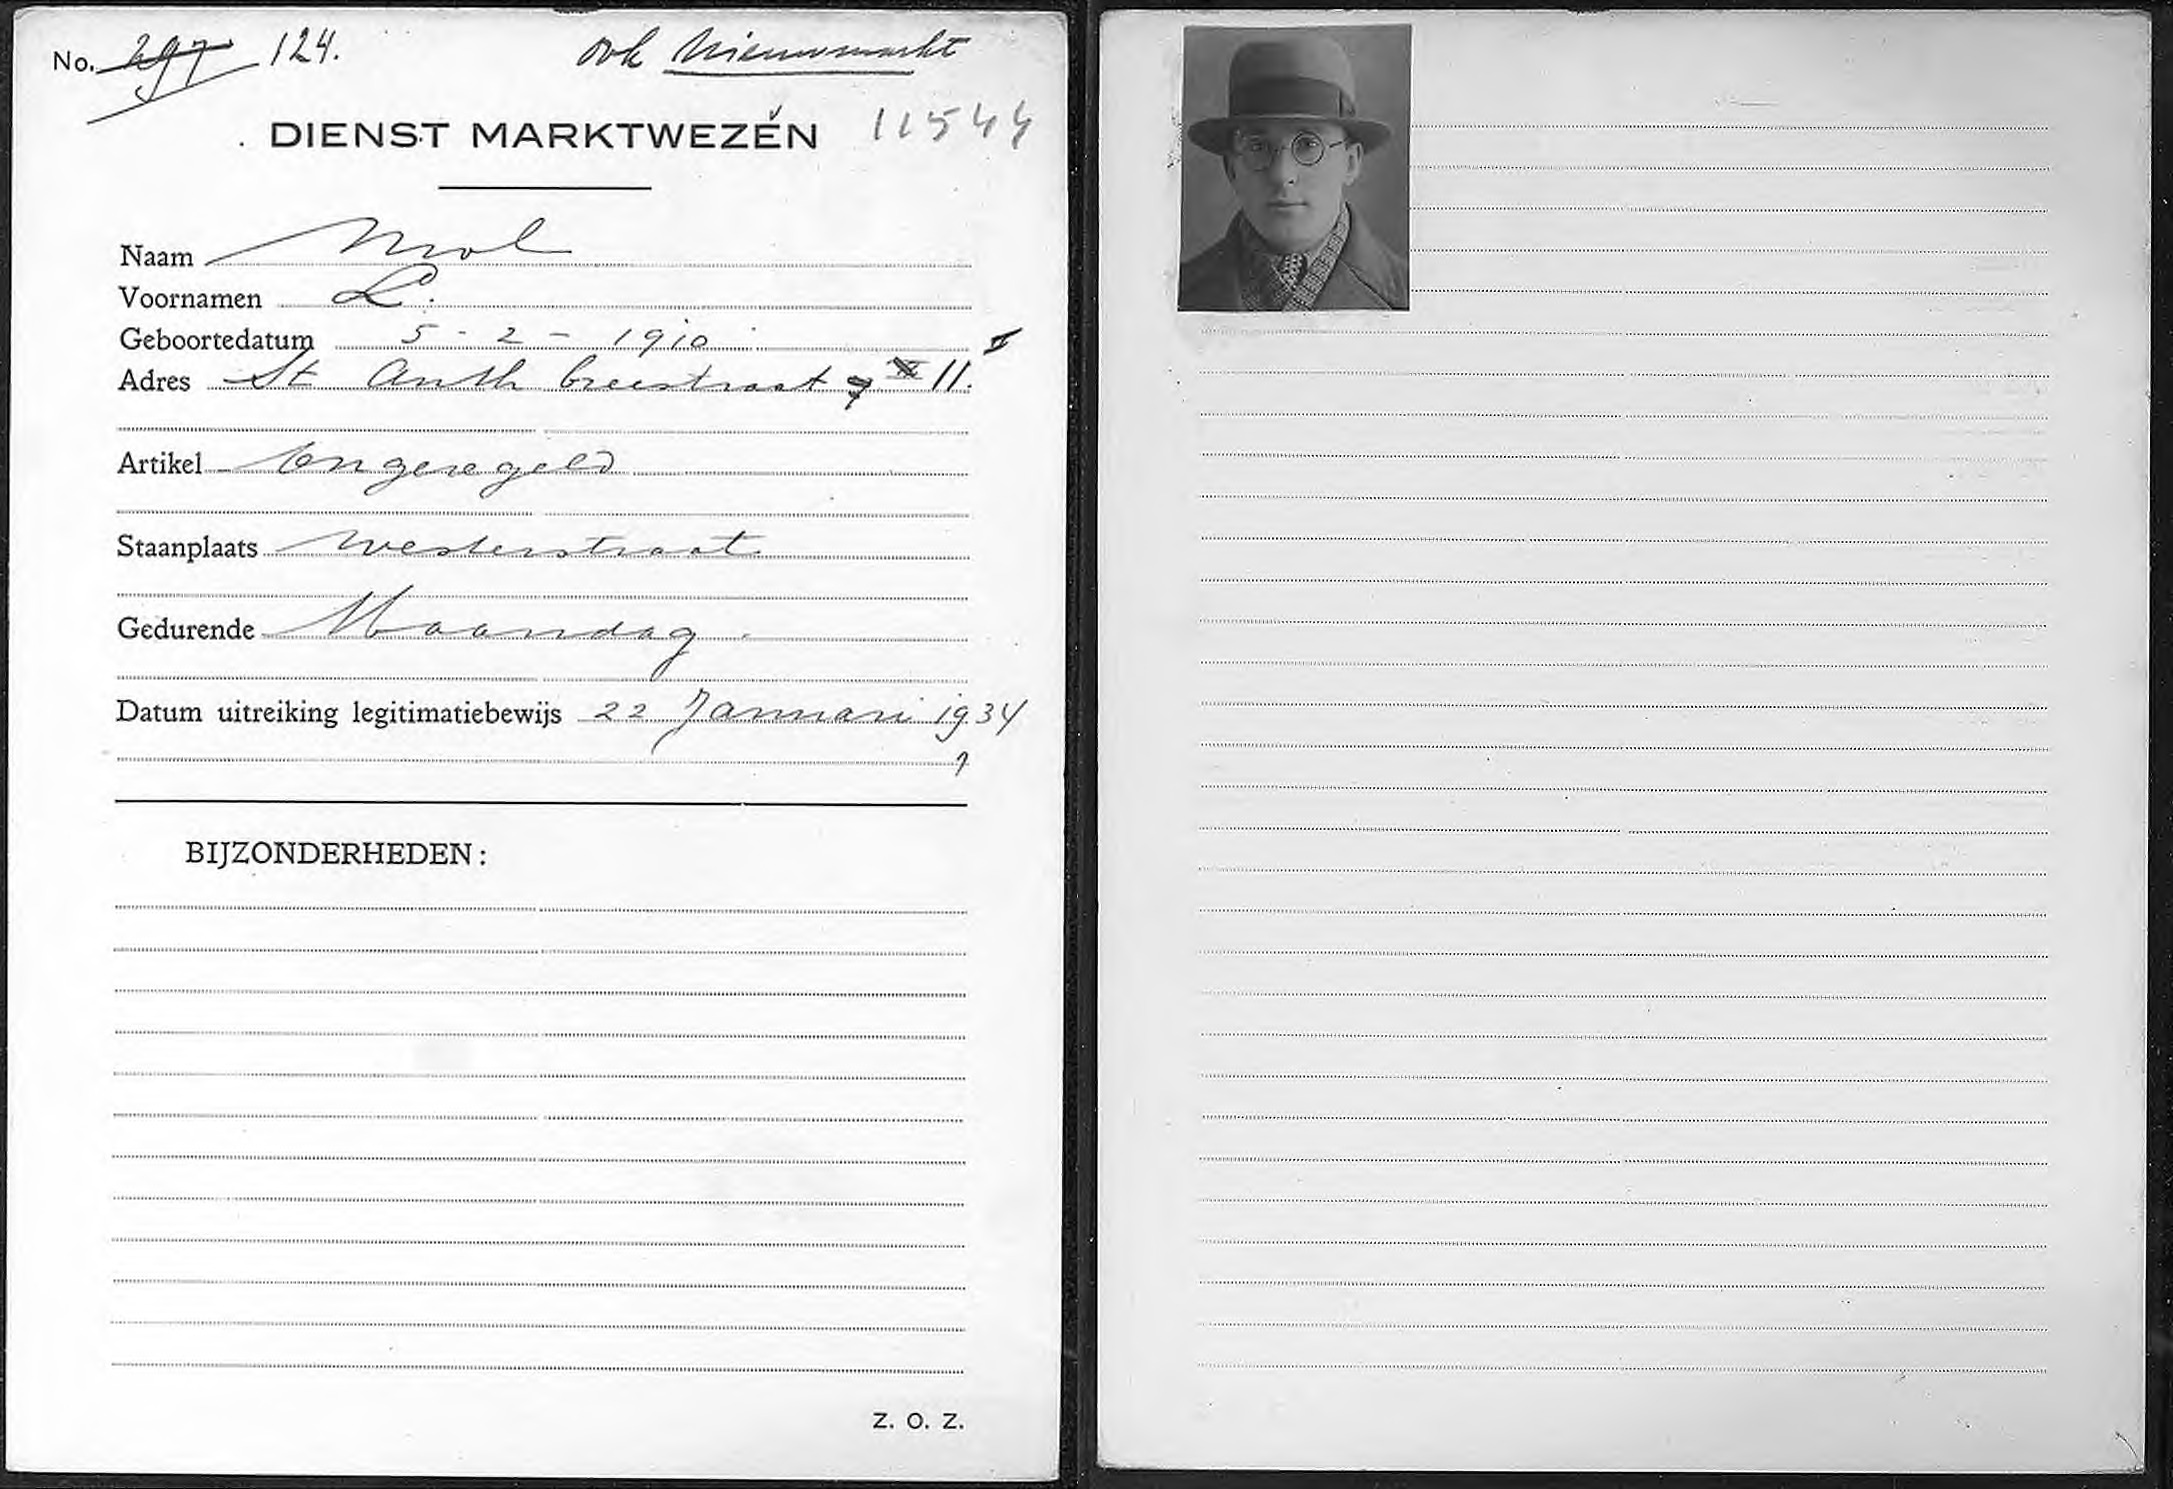 No. 297 124. ook Nieuwmarkt
DIENST MARKTWEZEN 11544
Naam Mol
Voornamen L.
Geboortedatum 5-2-1910
Adres St Anth breestraat 11. II
Artikel Ongeregeld
Staanplaats Westerstraat
Gedurende Maandag.
Datum uitreiking legitimatiebewijs 22 Januari 1934
BIJZONDERHEDEN:
Z. O. Z.